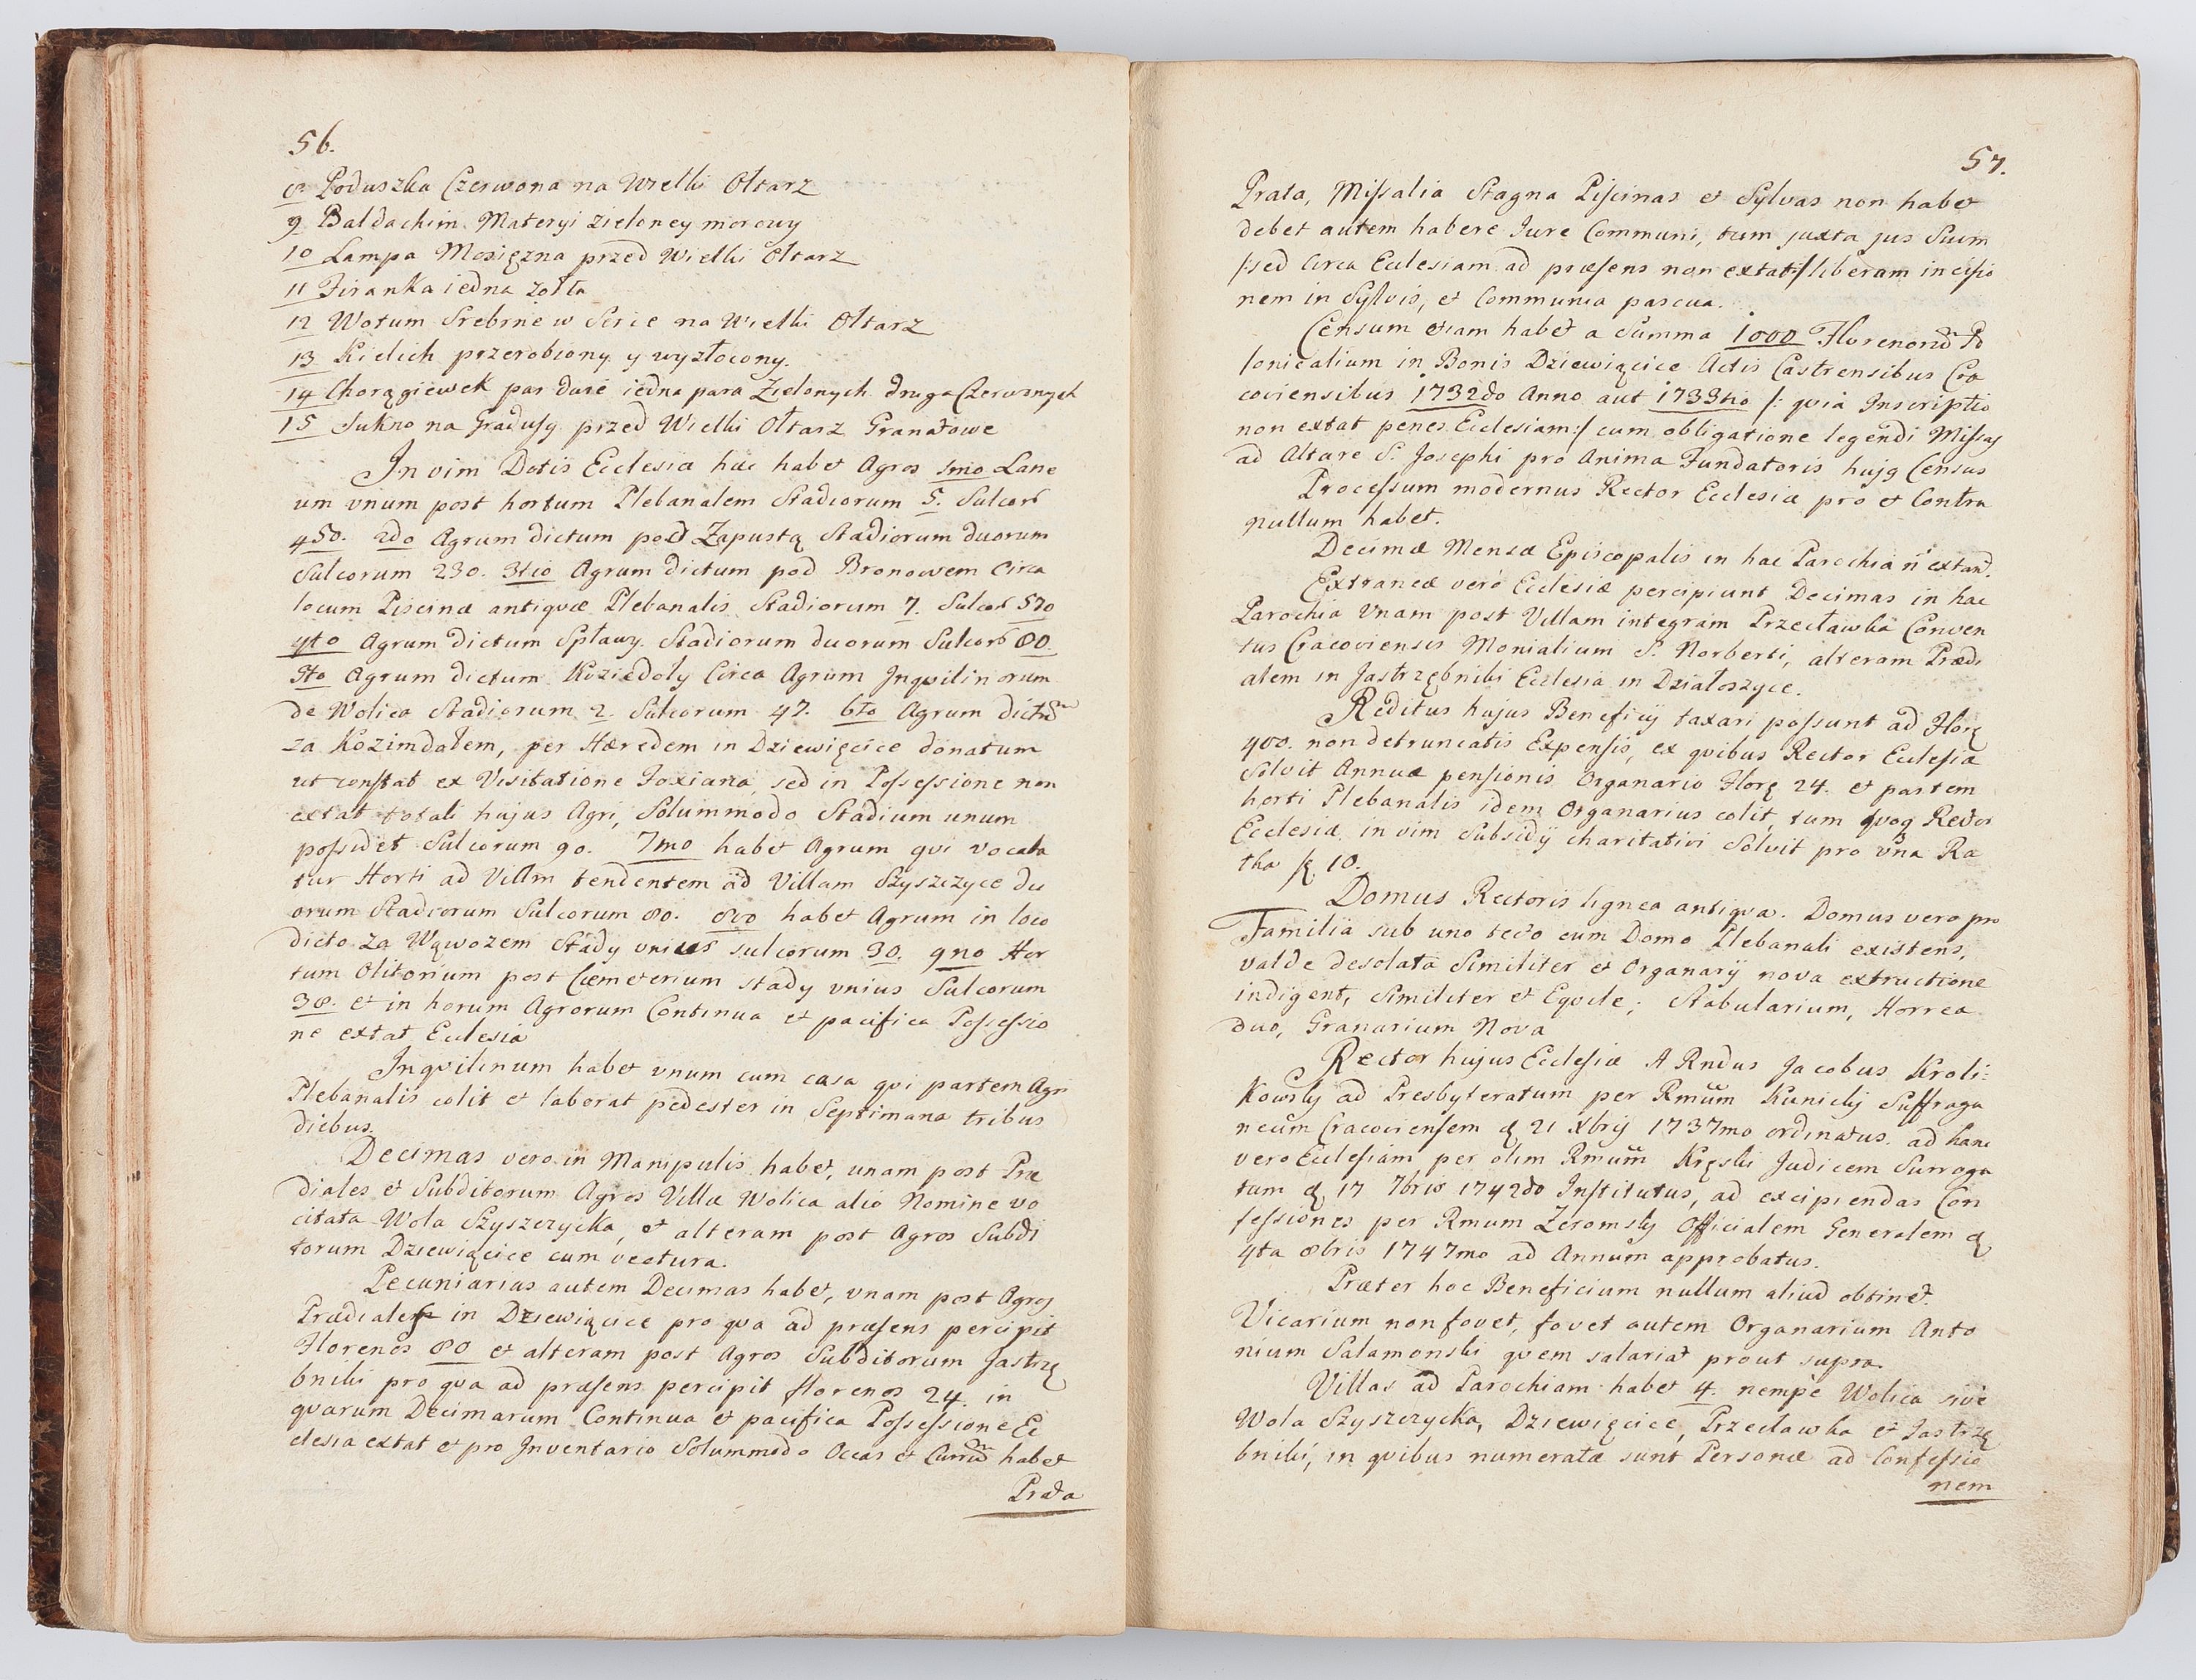 56.
8 Poduszka Czerwona na Wielki Ołtarz
9 Baldachim Materyi zieloney morowy
10 Lampa Mosięzna przed Wielki Ołtarz
11 Firanka iedna żołta
12 Wotum Srebrne w Serie na Wielki Ołtarz
13 Kielich przerobiony y wyzłocony.
14 Chorągiewek par dwie iedna para Zielonych druga Czerwonych
15 Sukno na Gradusy przed Wielki Ołtarz Granatowe
In vim Dotis Ecclesia hæc habet Agros 1mo Lane
um vnum post hortum Plebanalem Stadiorum 5. Sulcor
450. 2do Agrum dictum pod Zapustą Stadiorum duorum
Sulcorum 230. 3tio Agrum dictum pod Bronowem Circa
locum Piscinæ antiquæ Plebanalis Stadiorum 7. Sulcor 570
4to Agrum dictum Spławy Stadiorum duorum Sulcor 80.
5to Agrum dictum Koziedoły Circa Agrum Inqvilinorum
de Wolica Stadiorum 2. Sulcorum 47. 6to Agrum dictu
za Kozimdałem, per Hæredem in Dziewięcice donatum
ut constat ex Visitatione Toxiana, sed in Possessione non
extat totali hujus Agri, Solummodo Stadium unum
possidet Sulcorum 90. 7mo habet Agrum qvi vocata
tur Horti ad Villm tendentem ad Villam Szyszczyce du
orum Stadiorum Sulcorum 80. 8vo habet Agrum in loco
dicto za Wąwozem Stady vnius sulcorum 30. 9no Hor
tum Olitorium post Cæmeterium stady vnius Sulcorum
38. et in horum Agrorum Continua et pacifica Possessio
ne extat Ecclesia
Inqvilinum habet vnum cum casa qvi partem Agri
Plebanalis colit et laborat pedester in Septimana tribus
diebus.
Decimas vero in Manipulis habet, unam post Præ
diales et Subditorum Agros Villæ Wolica alio Nomine vo
citata Wola Szyszczycka, et alteram post Agros Subdi
torum Dziewięcice cum vectura.
Pecuniarias autem Decimas habet, vnam post Agros
Prædiales in Dziewięcice pro qva ad præsens percipit
Florenos 80 et alteram post Agros Subditorum Jastrzę
bniki pro qva ad præsens percipit florenos 24. in
qvarum Decimarum Continua et pacifica Possessione Ec
clesia extat et pro Inventario Solummodo Occas et Currū habet
Prata
57.
Prata, Missalia Stagna Piscinas et Sylvas non habet
debet autem habere Jure Communi, tum juxta jus Suum
/:sed Circa Ecclesiam ad præsens non extat:/ liberam incisio
nem in Sylvis, et Communia pascua.
Censum etiam habet a Summa 1000 Florenorū Po
lonicalium in Bonis Dziewięcice Actis Castrensibus Cra
coviensibus 1732do Anno aut 1733tio /: qvia Inscriptio
non extat penes Ecclesiam:/ cum obligatione legendi Missas
ad Altare S. Josephi pro Anima Fundatoris hujg Census
Processum modernus Rector Ecclesiæ pro et Contra
nullum habet.
Decimæ Mensæ Episcopalis in hac Parochia ñ extant.
Extraneæ verò Ecclesiæ percipiunt Decimas in hac
Parochia Vnam post Villam integram Przecławka Conven
tus Cracoviensis Monialium S. Norberti, alteram Prædi
alem in Jastrzębniki Ecclesia in Działoszyce.
Reditus hujus Beneficij taxari possunt ad Flor
400. non detruncatis Expensis, ex qvibus Rector Ecclesiæ
Solvit Annuæ pensionis Organario Flor 24. et partem
horti Plebanalis idem Organarius colit, tum qvoq Rector
Ecclesiæ in vim Subsidij charitativi Solvit pro vna Ra
tha f 10.
Domus Rectoris lignea antiqva. Domus vero pro
Familia sub uno tecto cum Domo Plebanali existens,
valde desolata Similiter et Organarij nova extructione
indigent, Similiter et Eqvile; Stabularium, Horrea
duo, Granarium Nova
Rector hujus Ecclesiæ A Rndus Jacobus Kroli:
kowsky ad Presbyteratum per Rmūm Kunicky Suffraga
neum Cracoviensem d 21 Xbrij 1737mo ordinatus. ad hanc
vero Ecclesiam per olim Rmūm Kręski Judicem Surroga
tum d 17 7bris 1742do Institutus, ad excipiendas Con
fessiones per Rmum Zeromsky Officialem Generalem d
4ta 8bris 1747mo ad Annum approbatus.
Præter hoc Beneficium nullum aliud obtinet.
Vicarium non fovet, fovet autem Organarium Anto
nium Salamonski qvem salariat prout supra.
Villas ad Parochiam habet 4. nempè Wolica sivè
Wola Szyszczycka, Dziewięcice, Przecławka et Jastrzę
bniki, in qvibus numeratæ sunt Personæ ad Confessio
nem